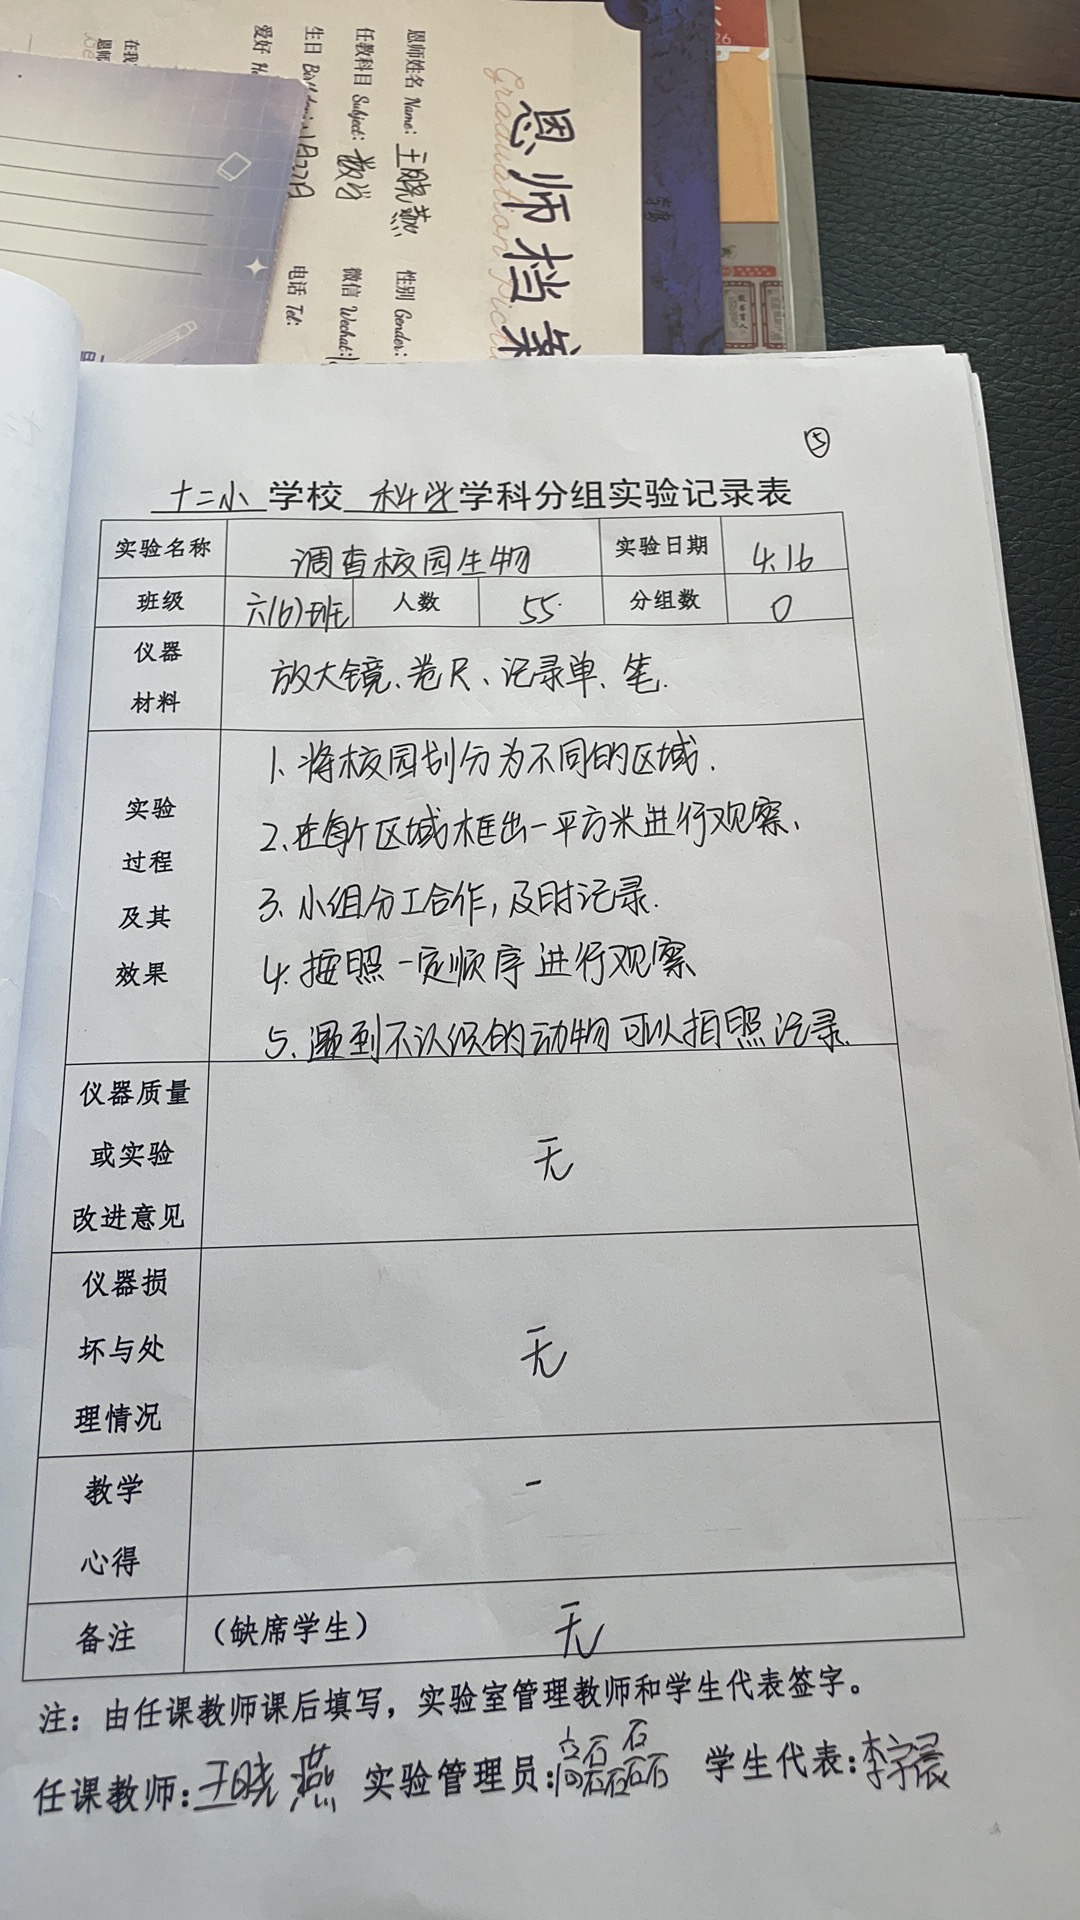 恩师档案
恩师姓名 Name: 王晓燕 性别 Gender:
任教科目 Subject: 数学 微信 Wechat:
生日 月27日 电话 Tel:
爱好
⑤
十二小学校科学学科分组实验记录表
实验名称 调查校园生物 实验日期 4.16
班级 六(6)班 人数 55. 分组数 0
仪器材料 放大镜、卷尺、记录单、笔.
实验过程及其效果
1、将校园划分为不同的区域.
2、在每个区域框出一平方米进行观察、
3、小组分工合作,及时记录.
4. 按照一定顺序进行观察
5、遇到不认识的动物可以拍照记录.
仪器质量或实验改进意见 无
仪器损坏与处理情况 无
教学心得 一
备注 （缺席学生） 无
注：由任课教师课后填写，实验室管理教师和学生代表签字。
任课教师:王晓燕 实验管理员:高磊磊 学生代表:李宇晨